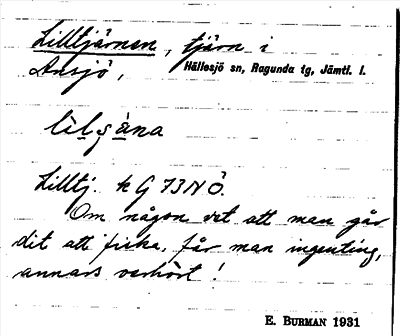 Lilltjärnen, tjärn i
Ansjö, Hällesjö sn, Ragunda tg, Jämtl. l.
lìlʂàna
Lilltj. k G 73 NÖ.
Om någon vet att man går
dit att fiska, får man ingenting,
annars oerhört!
E. BURMAN 1931